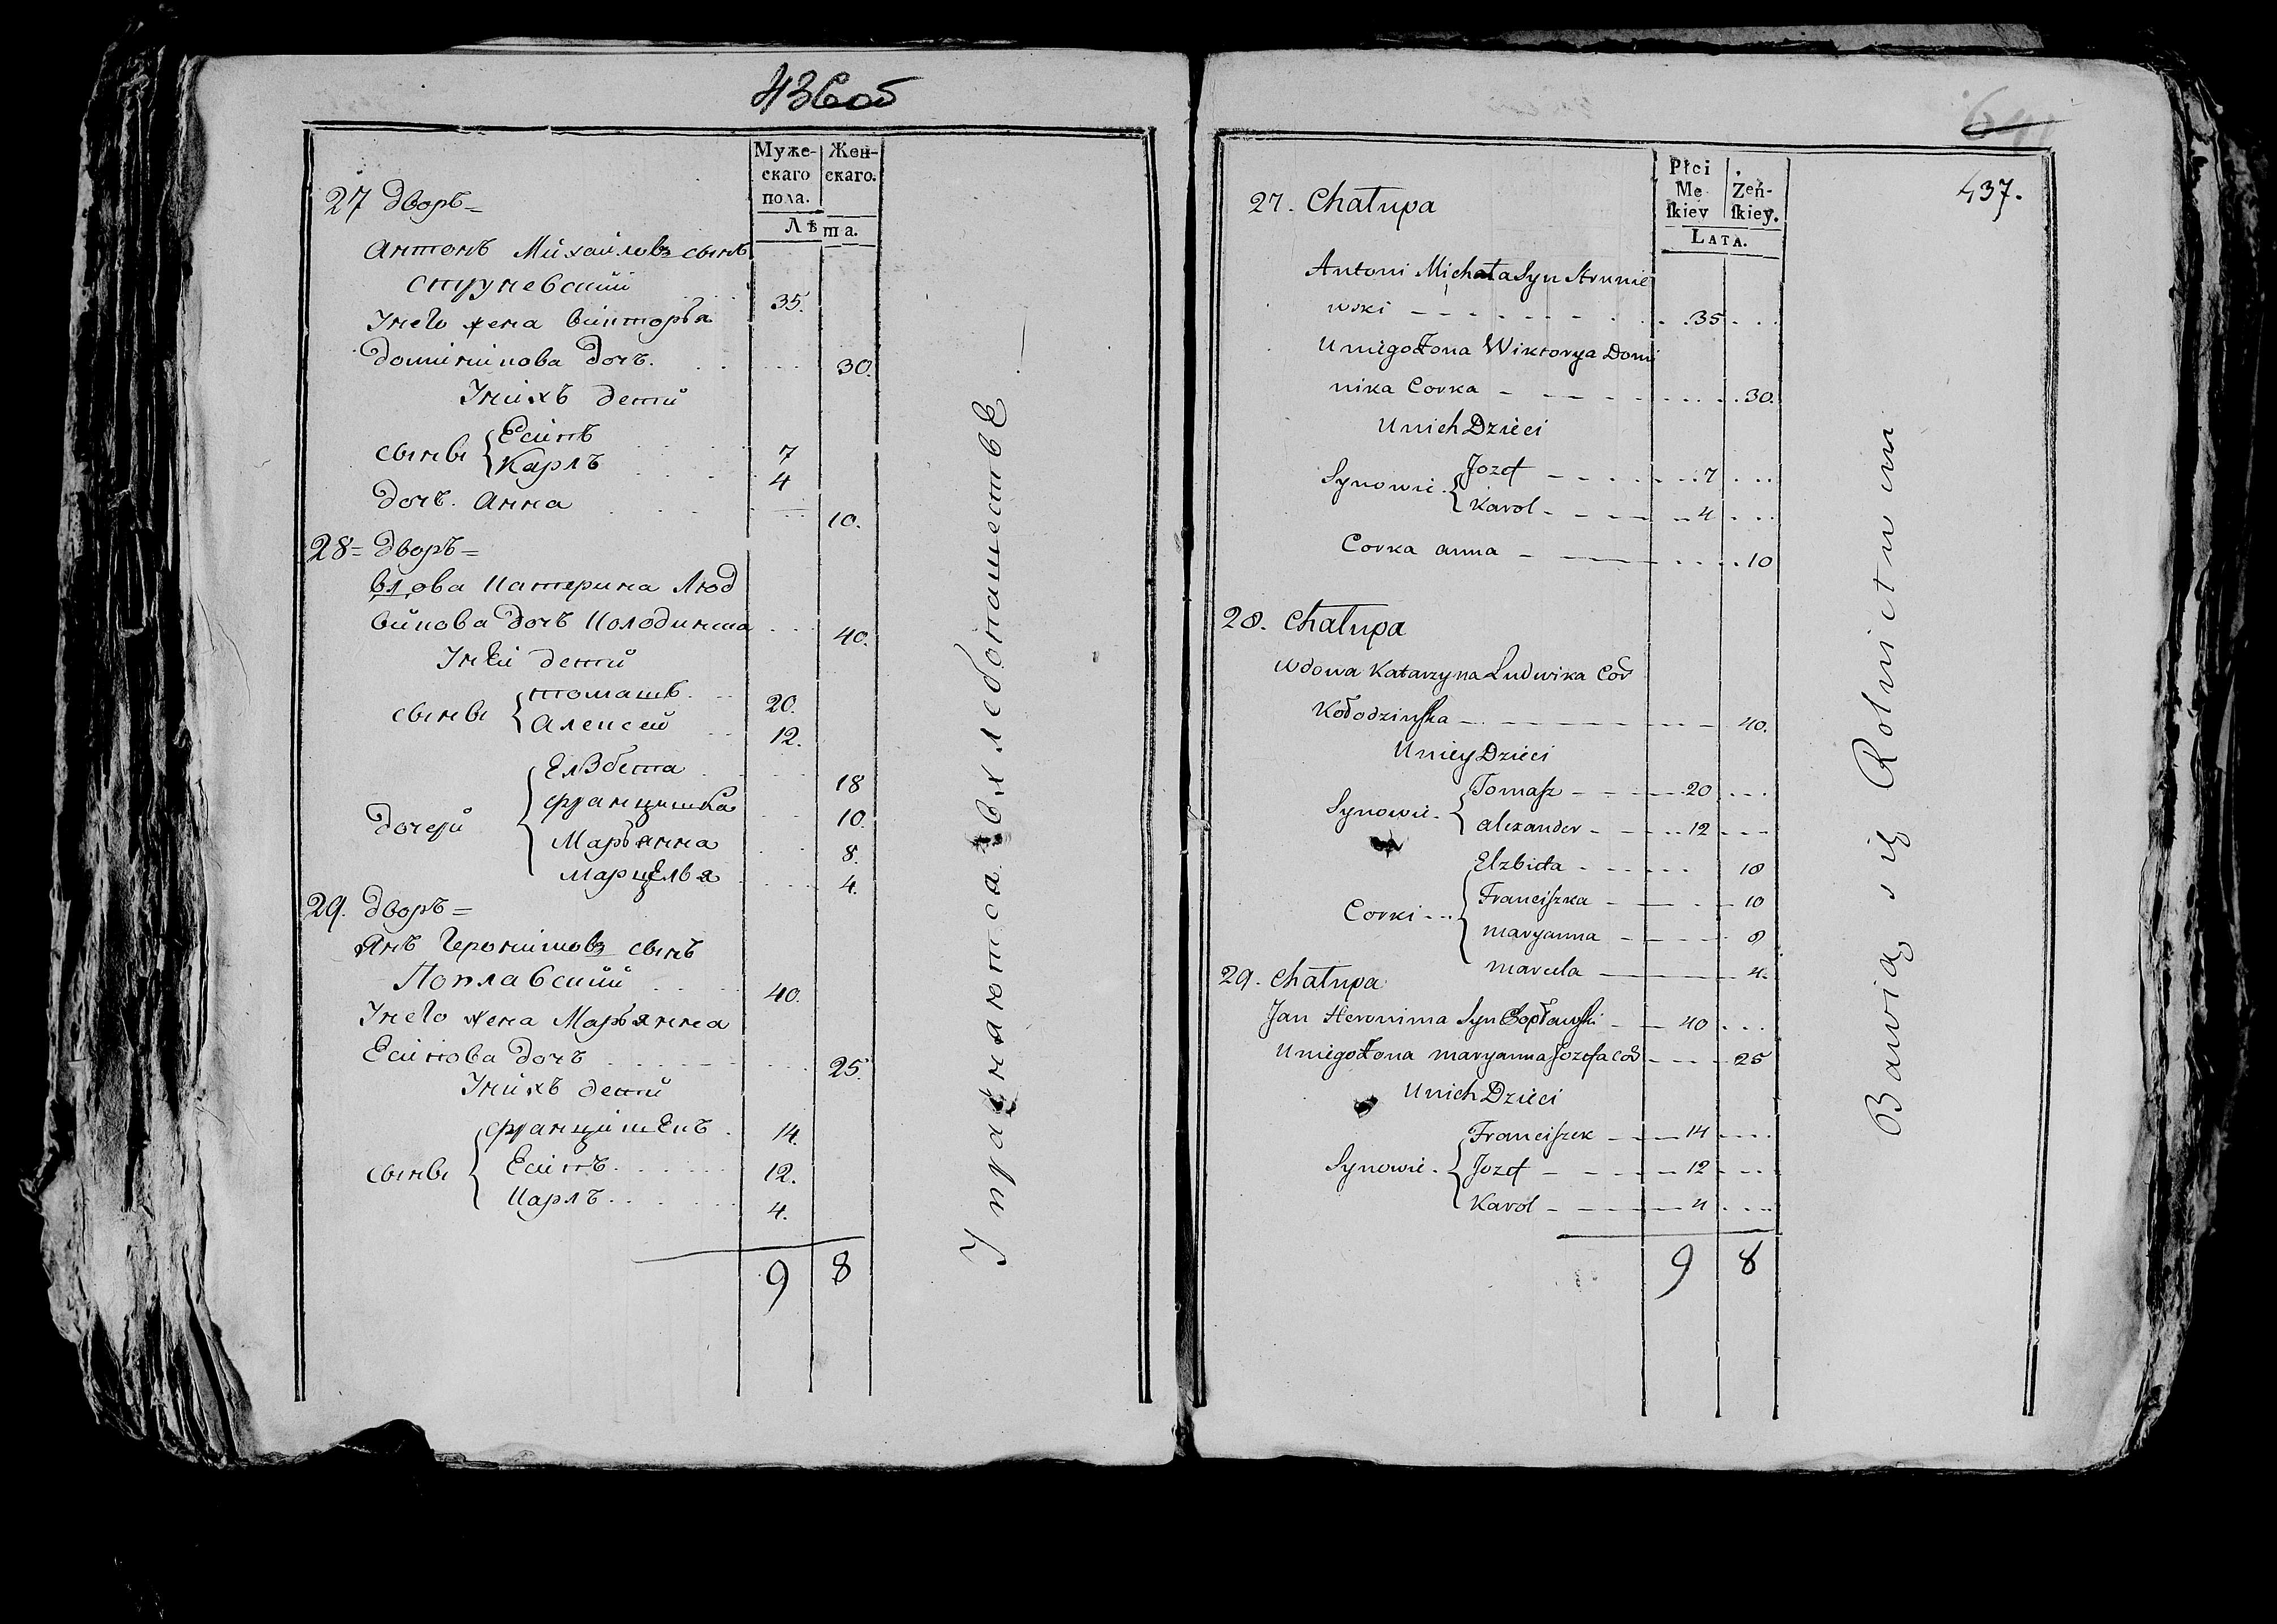 436 об
Муже-
скаго
пола.
Жен-
скаго.
Лѣта.
27 дворъ =
Антонъ Михайловъ сынъ
Струневский 35.
У него жена Викторья
Доминикова дочь. 30.
У нихъ детй
сыновья Есипъ 7
Карлъ 4
Дочь. Анна 10.
28 = дворъ =
вдова Катерина Люд
викова дочь Колодинска 40.
У ней детй
Томашъ 20.
Алексей 12.
Елзбета 18
Францишка 10.
дочери
Марьянна 8.
Марцелья 4.
29. дворъ =
Янъ Геронимовъ сынъ
Поплавский 40.
У него жена Марьянна
Есипова дочь 25.
У нихъ детй
Францишекъ 14.
Есипъ 12.
Карлъ 4.
9 8
Упражняются в хлебопашестве
437.
Płci
Mę
skiey
Zeń-
skiey.
LATA.
27. Chałupa
Antoni Michała Syn Strunie
wski 35
U niego Żona Wiktorya Domi
nika Corka 30.
U nich Dzieci
Synowie. Jozef 7
Karol 4
Corka anna 10
28. Chałupa
Wdowa Katarzyna Ludwika Cor
Kołodzinska 40.
U niey Dzieci
Synowie. Tomasz 20
alexander 12
Elzbieta 18
Corki Franciszka 10
maryanna 8
marcela 4.
29. Chałupa
Jan Heronima Syn Popławski 40
U niego Żona maryanna Jozefa Cor 25
U nich Dzieci
Franciszek 14
Synowie. Jozef 12
Karol 4
9 8
Bawią się Rolnictwem